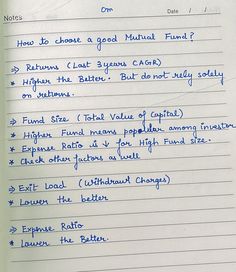 Om
Notes
Date / /
How to choose a good Mutual Fund?
⇒ Returns (Last 3 years CAGR)
* Higher the Better. But do not rely solely
on returns.
⇒ Fund Size (Total Value of Capital)
* Higher Fund means popular among investor
* Expense Ratio is ↓ for High Fund size.
* Check other factors as well
⇒ Exit Load (Withdrawl Charges)
* Lower the better
⇒ Expense Ratio
* Lower the Better.